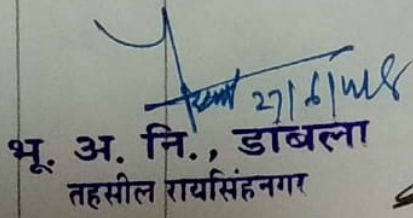 27/6/
भू. अ. नि., डाबला
तहसील रायसिंहनगर